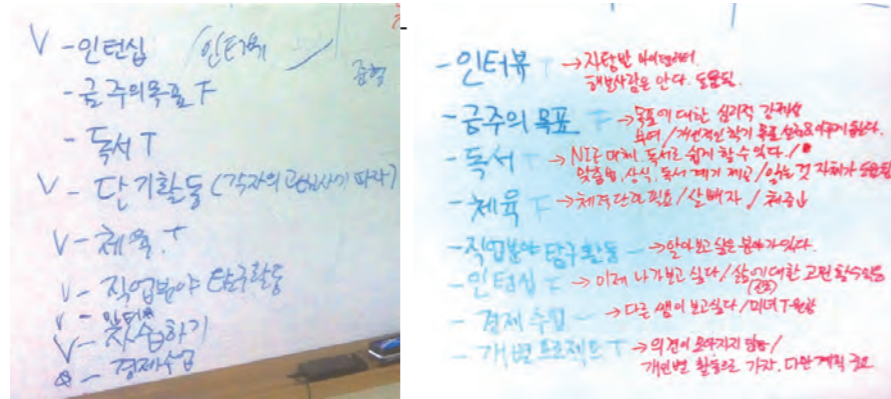 V - 인턴십 /인터뷰
- 금주의목표 F
- 독서 T
V - 단기활동 (각자의 관심사에 따라)
V - 체육. T
V - 직업분야 탐구활동
V - 인터뷰
V - 자습하기
- 경제수업
금형
- 인터뷰 T → 자란반
해본사람은 안다. 도움됨.
- 금주의 목표 F → 목표에 대한 심리적 강제성
부여 / 개인적인 학기 목표
- 독서 T → NIE 대체, 독서로 쉽게 할 수 있다. /
맞춤법, 상식, 독서 계기 제공 / 읽는 것 자체가 도움됨
- 체육 T → 체력단련 필요 / 살빼자 / 체중↓
- 직업분야 탐구활동 → 알아보고 싶은 분야가 있다.
- 인턴십 T → 이제 나가보고 싶다 / 삶에 대한 고민 할 수 있음
(진로)
- 경제 수업 → 다른 쌤이 보고싶다 / 미녀 T
- 개별 프로젝트 T → 의견이 모아지지 않음 /
개인별 활동으로 가자. 다만 계획 필요